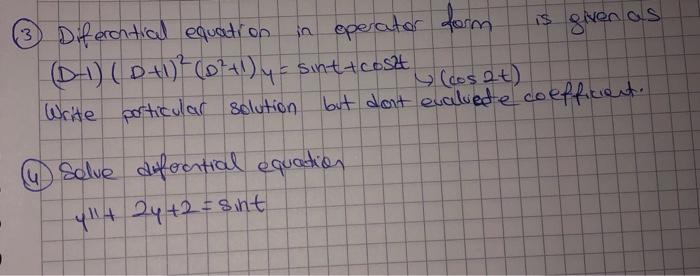 ③ Diferential equation in operator form is given as
(D-1)(D+1)²(D²+1)y = sint+cos2t
↳ (cos 2t)
Write particular solution but dont evaluate coefficient.
④ Solve diferential equation
y''+ 2y+2 = sint